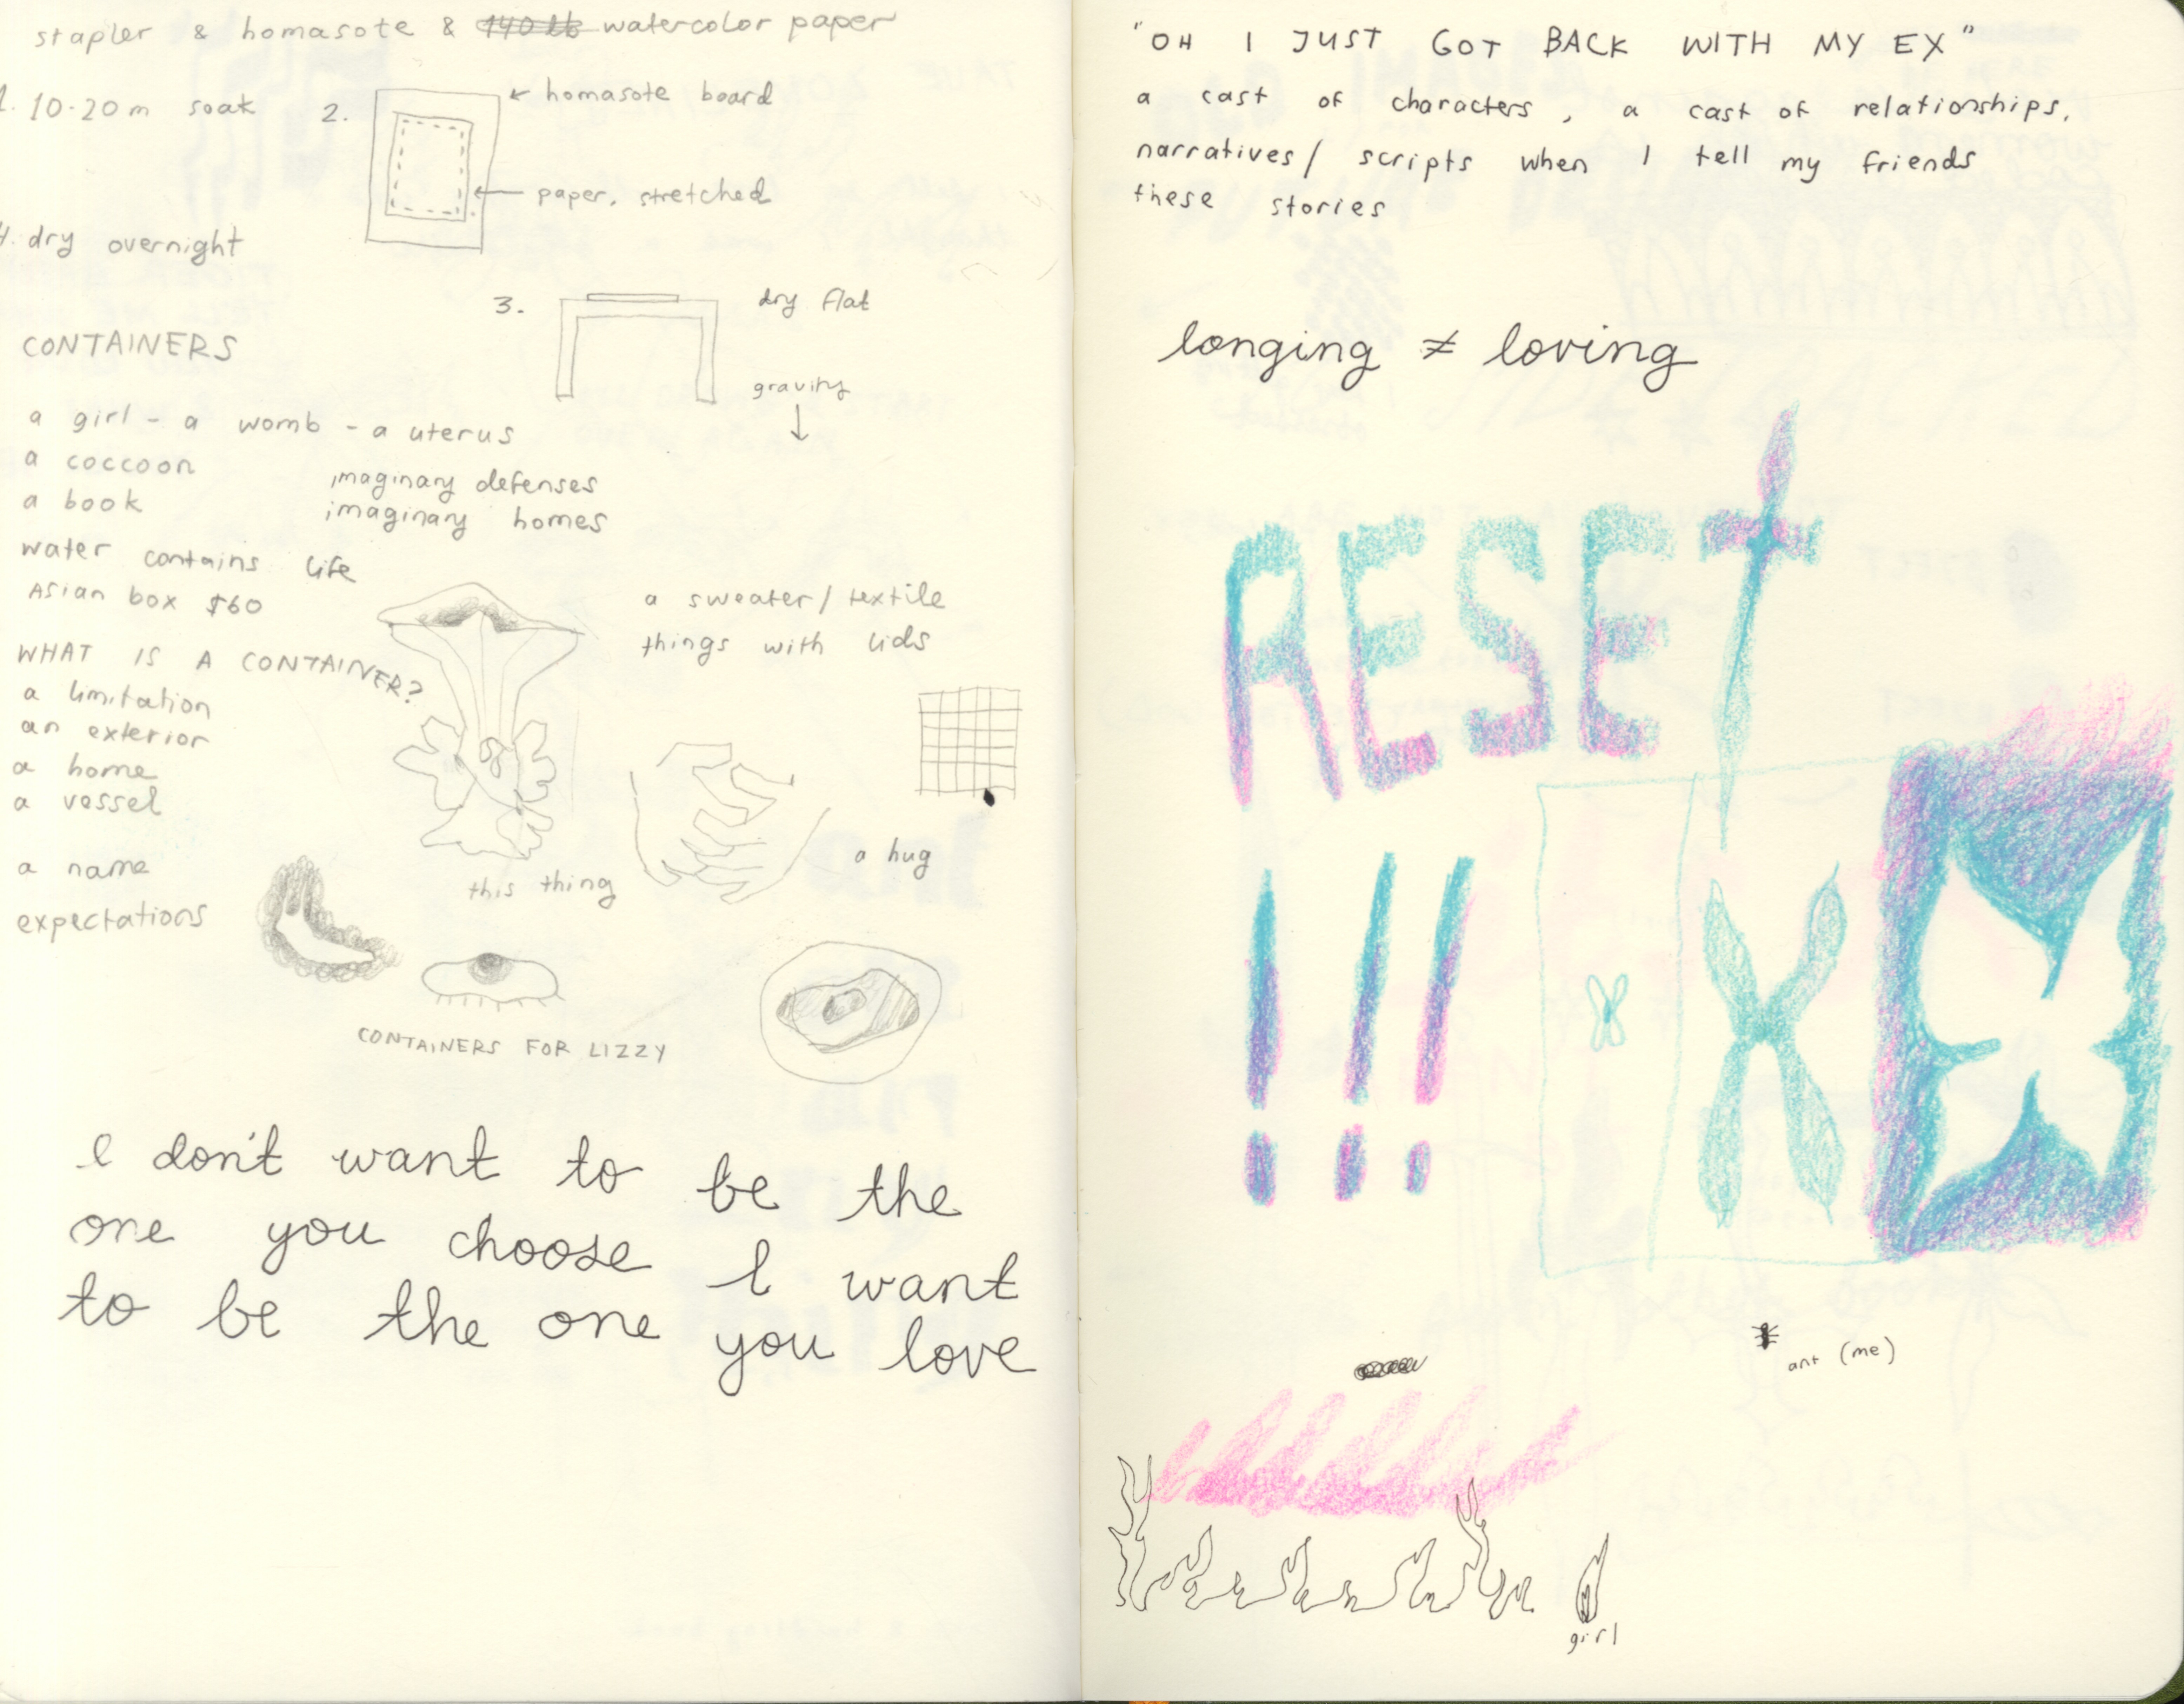 stapler & homasote & 140 lb watercolor paper
1. 10-20m soak
2.
homasote board
paper, stretched
4. dry overnight
3.
dry flat
gravity
CONTAINERS
a girl - a womb - a uterus
a coccoon
a book
imaginary defenses
imaginary homes
water contains life
Asian box $60
a sweater/textile
things with lids
WHAT IS A CONTAINER?
a limitation
an exterior
a home
a vessel
a name
expectations
this thing
a hug
CONTAINERS FOR LIZZY
I don't want to be the
one you choose I want
to be the one you love
"OH I JUST GOT BACK WITH MY EX"
a cast of characters, a cast of relationships,
narratives/ scripts when I tell my friends
these stories
longing ≠ loving
RESET
!!!
ant (me)
girl